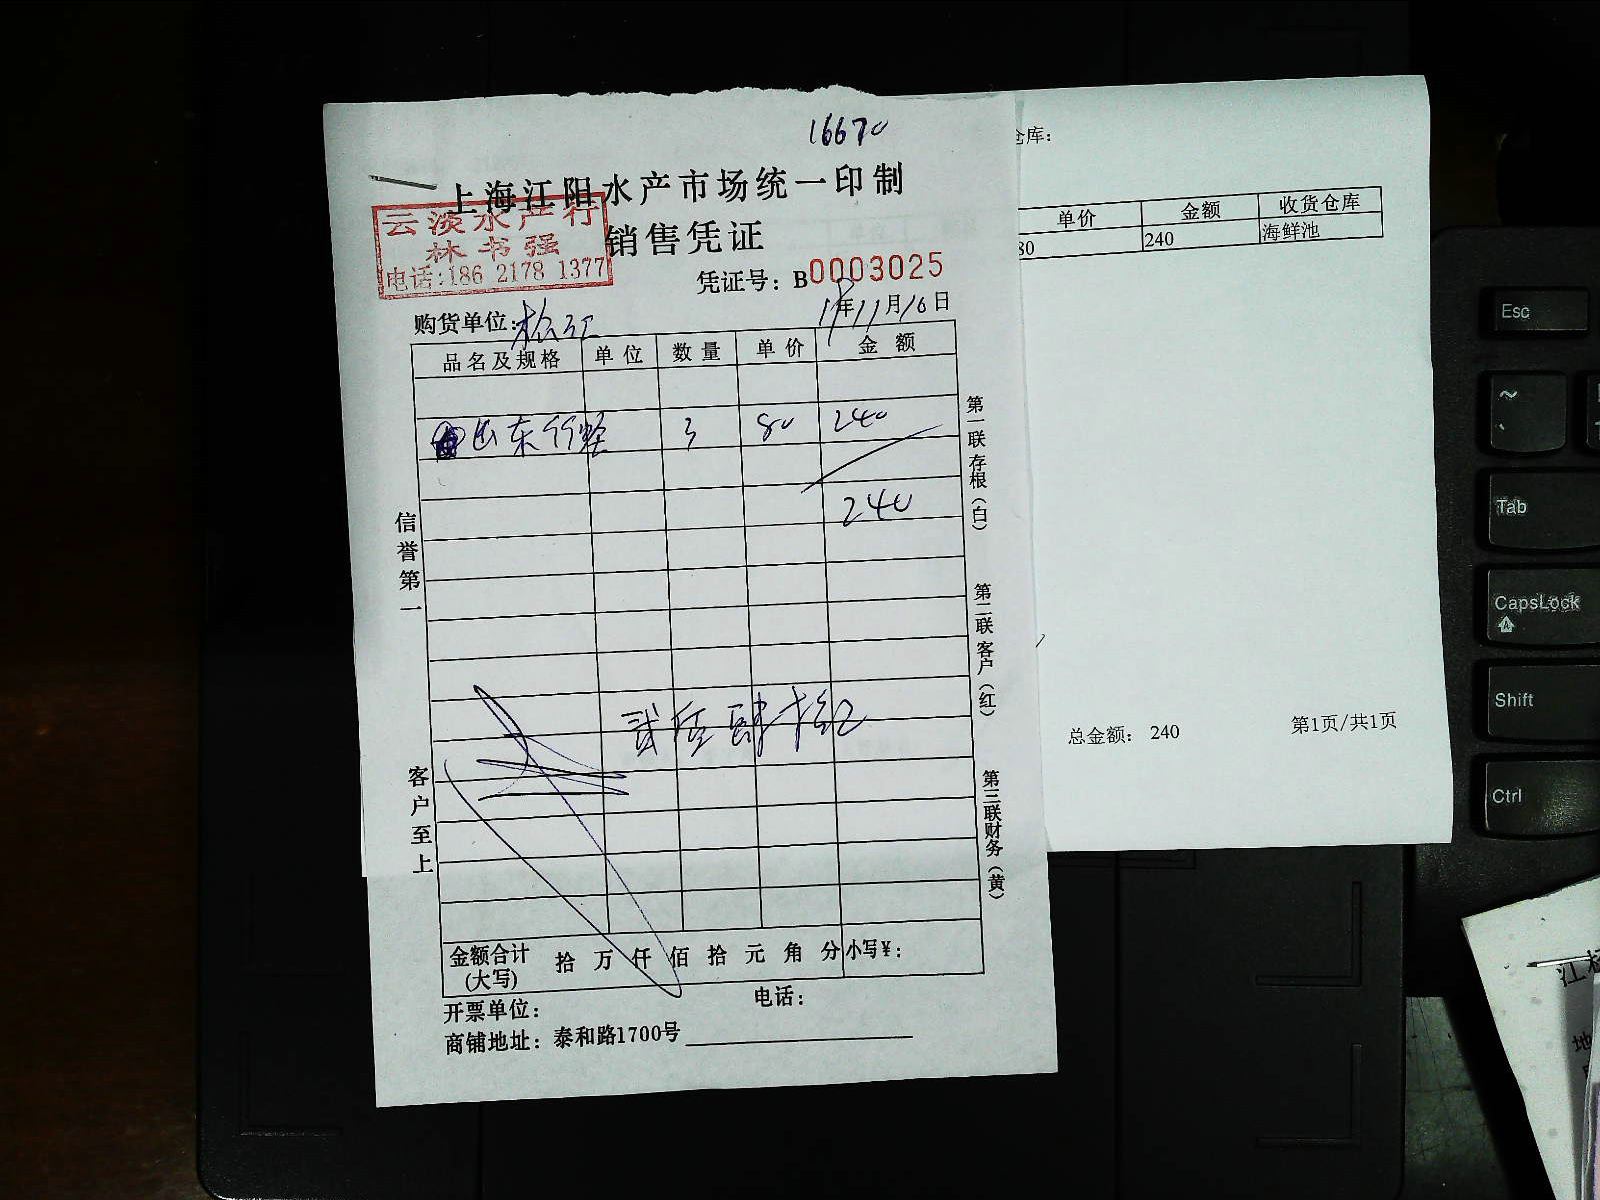 16670
上海江阳水产市场统一印制
云淡水产行
林书强
电话:186 2178 1377
销售凭证
凭证号：B0003025
购货单位：松江
19年11月16日
品名及规格 单位 数量 单价 金额
山东竹蛏 3 80 240
240
贰佰肆拾元
信誉第一
客户至上
第一联存根（白）
第二联客户（红）
第三联财务（黄）
金额合计(大写) 拾 万 仟 佰 拾 元 角 分 小写￥：
开票单位：
电话：
商铺地址：泰和路1700号
仓库：
单价 金额 收货仓库
80 240 海鲜池
总金额： 240
第1页/共1页
Esc
~
Tab
CapsLock
Shift
Ctrl